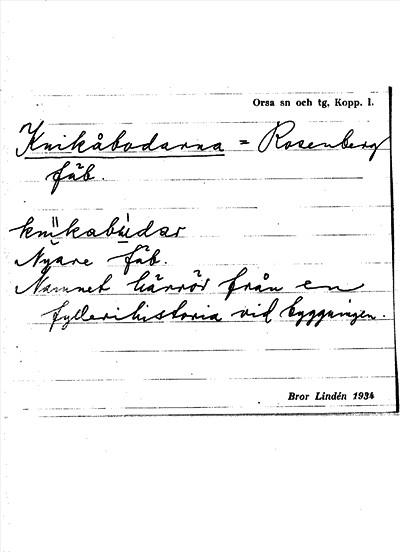 Orsa sn och tg, Kopp. l.
Knikåbodarna = Rosenberg
fäb.
Nyare fäb.
Namnet härrör från en
fyllerihistoria vid byggningen.
Bror Lindén 1934